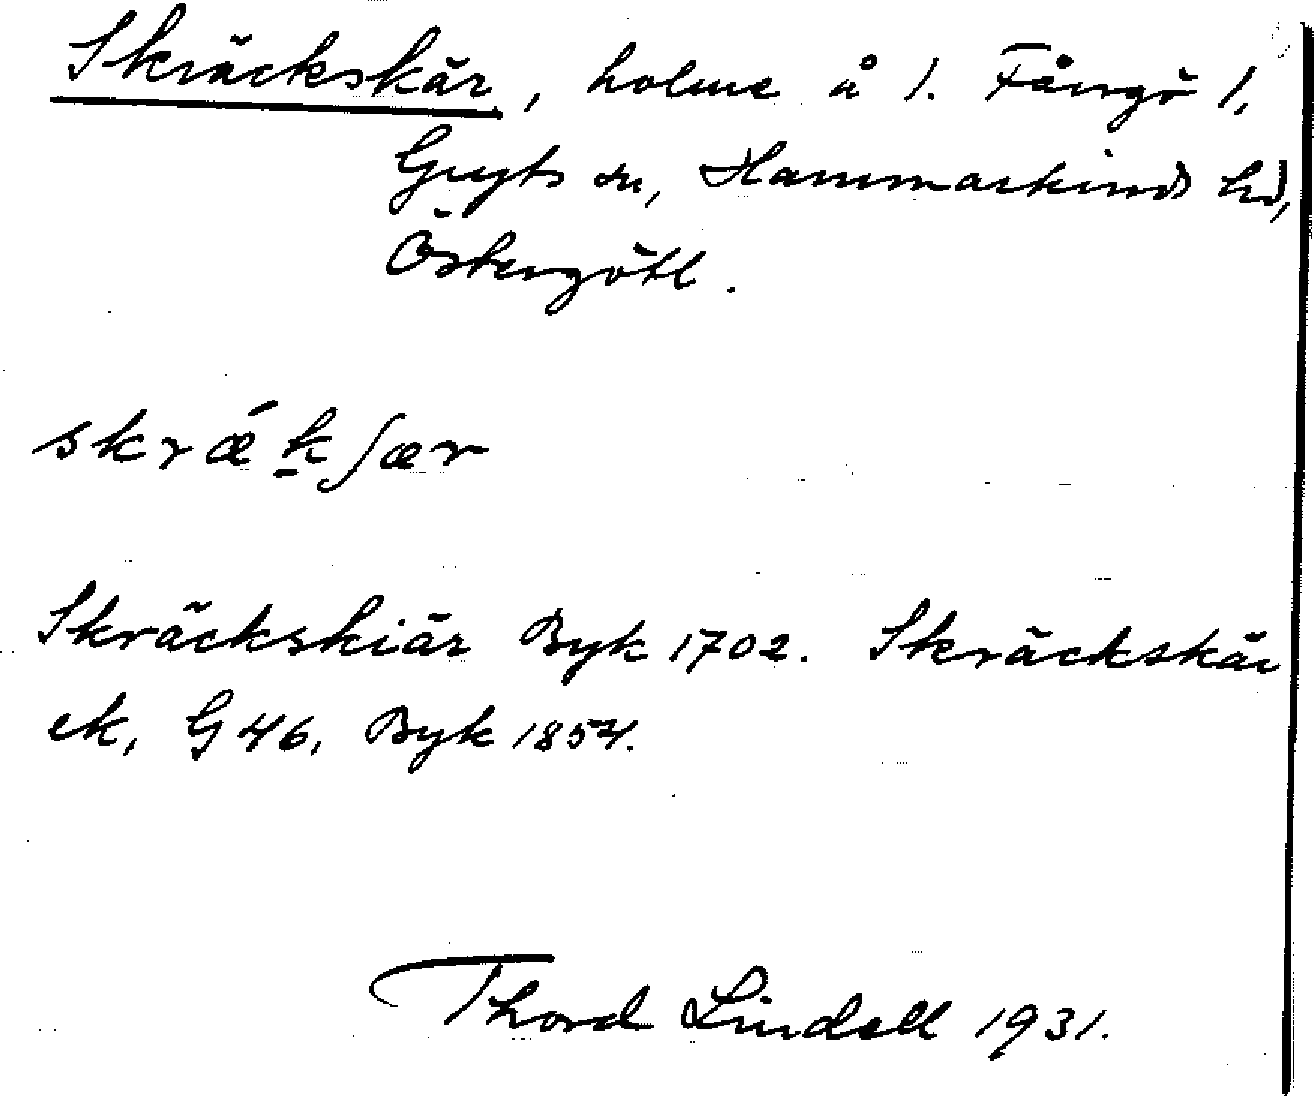 Skräckskär, holme å 1. Fångö 1,
Gryts sn, Hammarkinds hd,
Östergötl.
skrǽkʃær
Skräckskiär Byk 1702. Skräckskär
ek, G 46, Byk 1854.
Thord Lindell 1931.